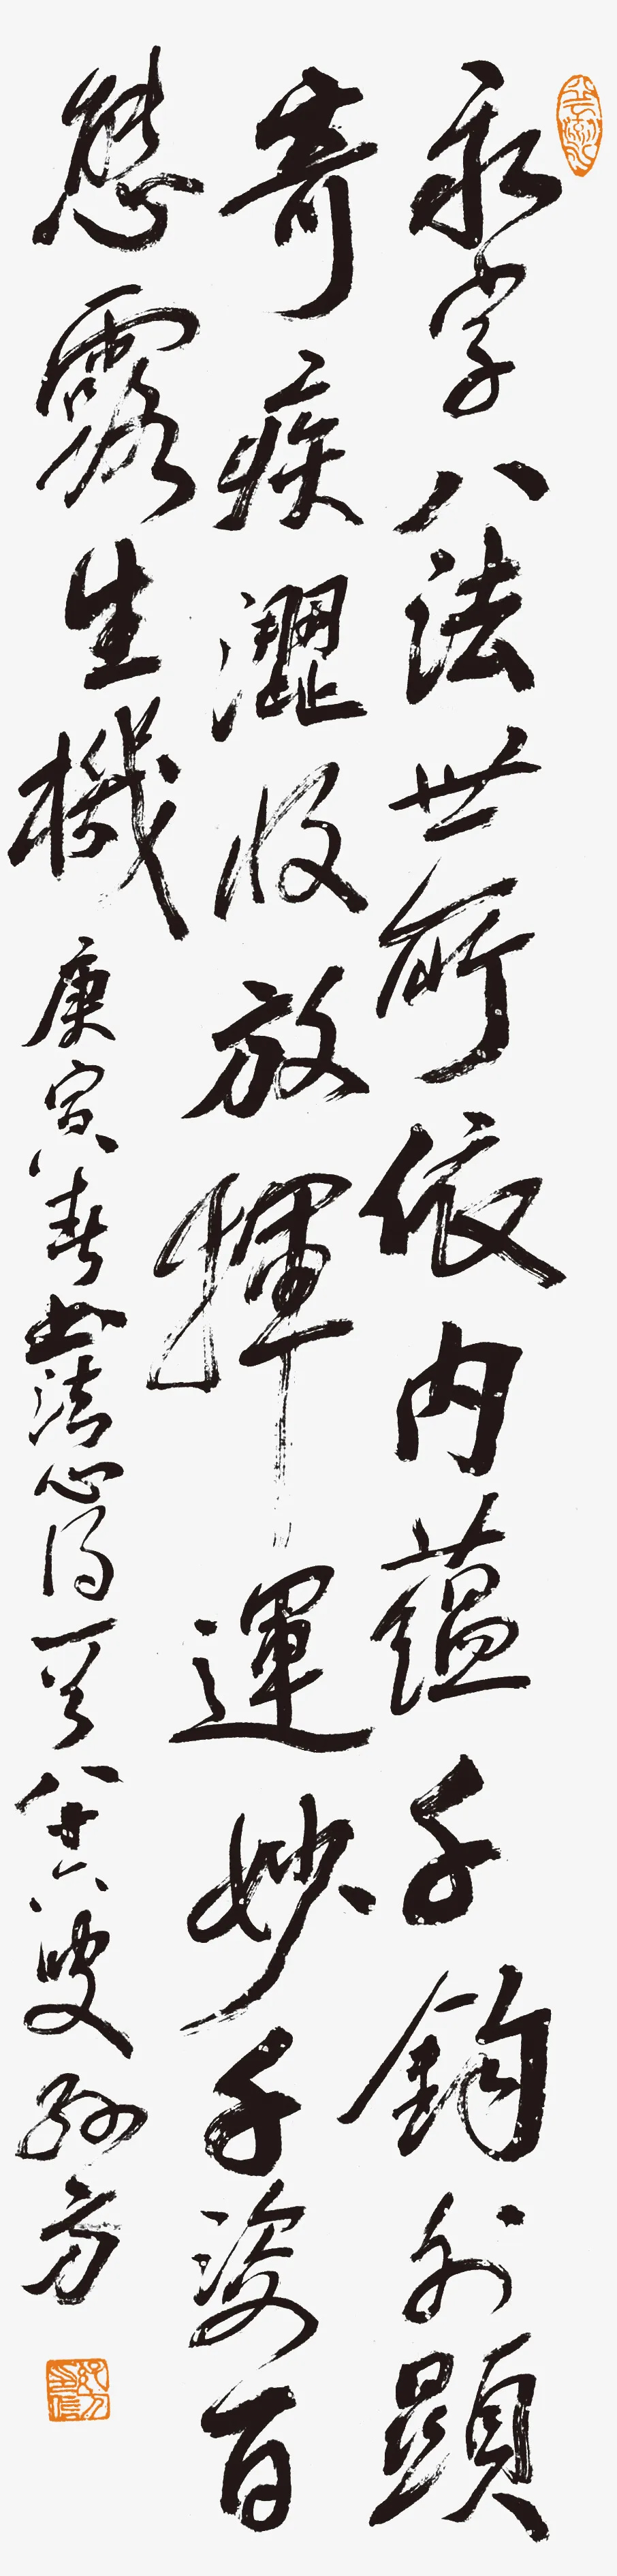 永字八法世所依内蕴千鈞外顯
奇疾澀收放揮運妙千姿百
態露生機
庚寅春書法心得一首八十六叟孙方